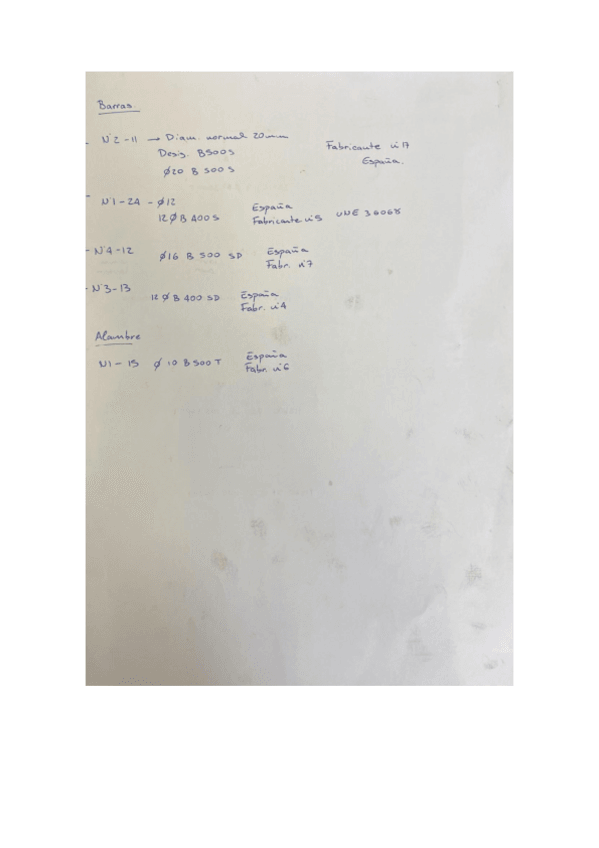 Barras
- Nº2-11 → Diam. normal 20mm
Desig. B500S
Ø20 B 500 S
Fabricante nº17
España.
- Nº1-24 - Ø12
12 Ø B 400 S
España
Fabricante nº5 UNE 36068
- Nº4-12 Ø16 B 500 SD España
Fabr. nº7
- Nº3-13
12 Ø B 400 SD España
Fabr. nº4
Alambre
Nº1-15 Ø 10 B 500 T España
Fabr. nº6